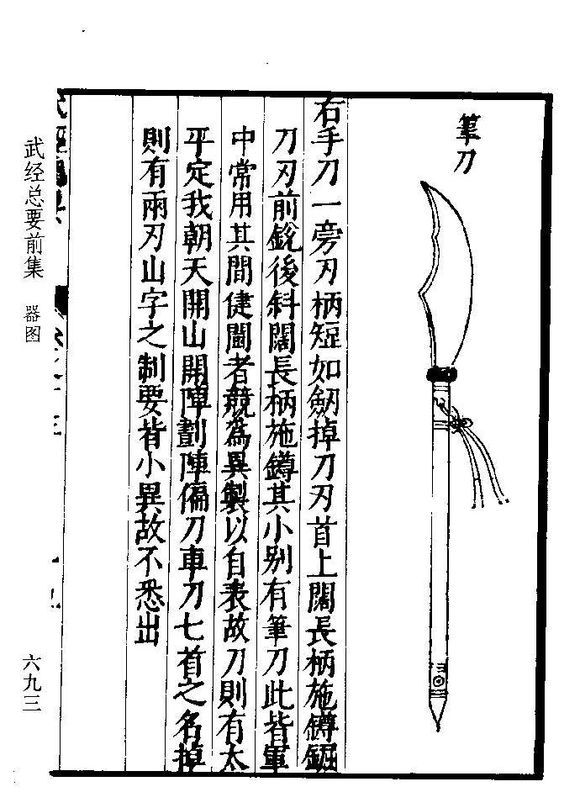 筆刀
右手刀一旁刃柄短如劒掉刀刃首上闊長柄施鐏
刀刃前銳後斜闊長柄施鐏其小别有筆刀此皆軍
中常用其間健鬭者競為異製以自表故刀則有太
平定我朝天開山開陣劃陣偏刀車刀七首之名掉
則有兩刃山字之制要皆小異故不悉出
武经总要前集 器图
六九三